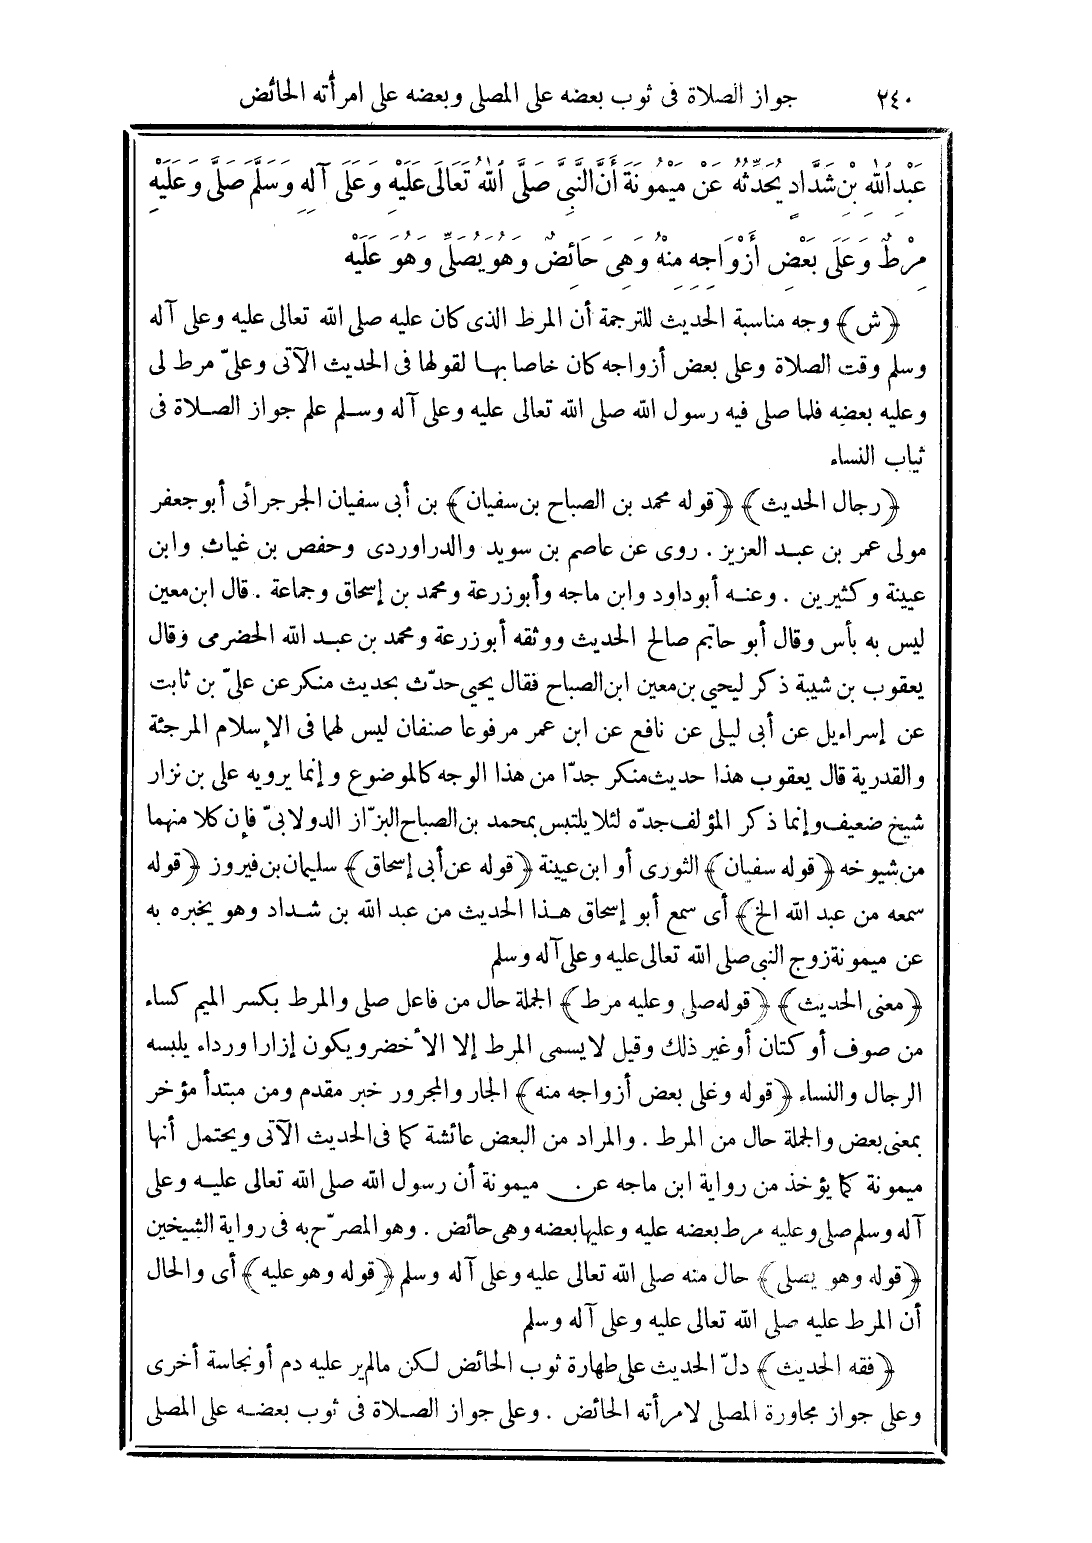 ٢٤٠ جواز الصلاة فى ثوب بعضه على المصلى وبعضه على امرأته الحائض
عَبْدِ ٱللهِ بْنِ شَدَّادٍ يُحَدِّثُهُ عَنْ مَيْمُونَةَ أَنَّ النَّبِىَّ صَلَّى ٱللهُ تَعَالَى عَلَيْهِ وَعَلَى آلِهِ وَسَلَّمَ صَلَّى وَعَلَيْهِ
مِرْطٌ وَعَلَى بَعْضِ أَزْوَاجِهِ مِنْهُ وَهِىَ حَائِضٌ وَهُوَ يُصَلِّى وَهُوَ عَلَيْهِ
﴿ش﴾ وجه مناسبة الحديث للترجمة أن المرط الذى كان عليه صلى الله تعالى عليه وعلى آله
وسلم وقت الصلاة وعلى بعض أزواجه كان خاصا بها لقولها فى الحديث الآتى وعلىّ مرط لى
وعليه بعضه فلما صلى فيه رسول الله صلى الله تعالى عليه وعلى آله وسلم علم جواز الصلاة فى
ثياب النساء
﴿رجال الحديث﴾ ﴿قوله محمد بن الصباح بن سفيان﴾ بن أبى سفيان الجرجرائى أبو جعفر
مولى عمر بن عبد العزيز . روى عن عاصم بن سويد والدراوردى وحفص بن غياث وابن
عيينة وكثيرين . وعنه أبو داود وابن ماجه وأبو زرعة ومحمد بن إسحاق وجماعة . قال ابن معين
ليس به بأس وقال أبو حاتم صالح الحديث ووثقه أبو زرعة ومحمد بن عبد الله الحضرمى وقال
يعقوب بن شيبة ذكر ليحيى بن معين ابن الصباح فقال يحيى حدّث بحديث منكر عن علىّ بن ثابت
عن إسراءيل عن أبى ليلى عن نافع عن ابن عمر مرفوعا صنفان ليس لهما فى الإسلام المرجئة
والقدرية قال يعقوب هذا حديث منكر جدّا من هذا الوجه كالموضوع وإنما يرويه على بن نزار
شيخ ضعيف وإنما ذكر المؤلف جدّه لئلا يلتبس بمحمد بن الصباح البزّاز الدولابىّ فإن كلا منهما
من شيوخه ﴿قوله سفيان﴾ الثورى أو ابن عيينة ﴿قوله عن أبى إسحاق﴾ سليمان بن فيروز ﴿قوله
سمعه من عبد الله الخ﴾ أى سمع أبو إسحاق هذا الحديث من عبد الله بن شداد وهو يخبره به
عن ميمونة زوج النبى صلى الله تعالى عليه وعلى آله وسلم
﴿معنى الحديث﴾ ﴿قوله صلى وعليه مرط﴾ الجملة حال من فاعل صلى والمرط بكسر الميم كساء
من صوف أو كتان أو غير ذلك وقيل لا يسمى المرط إلا الأخضر ويكون إزارا ورداء يلبسه
الرجال والنساء ﴿قوله وعلى بعض أزواجه منه﴾ الجار والمجرور خبر مقدم ومن مبتدأ مؤخر
بمعنى بعض والجملة حال من المرط . والمراد من البعض عائشة كما فى الحديث الآتى ويحتمل أنها
ميمونة كما يؤخذ من رواية ابن ماجه عن ميمونة أن رسول الله صلى الله تعالى عليه وعلى
آله وسلم صلى وعليه مرط بعضه عليه وعليها بعضه وهى حائض . وهو المصرّح به فى رواية الشيخين
﴿قوله وهو يصلى﴾ حال منه صلى الله تعالى عليه وعلى آله وسلم ﴿قوله وهو عليه﴾ أى والحال
أن المرط عليه صلى الله تعالى عليه وعلى آله وسلم
﴿فقه الحديث﴾ دلّ الحديث على طهارة ثوب الحائض لكن مالم ير عليه دم أو نجاسة أخرى
وعلى جواز مجاورة المصلى لامرأته الحائض . وعلى جواز الصلاة فى ثوب بعضه على المصلى